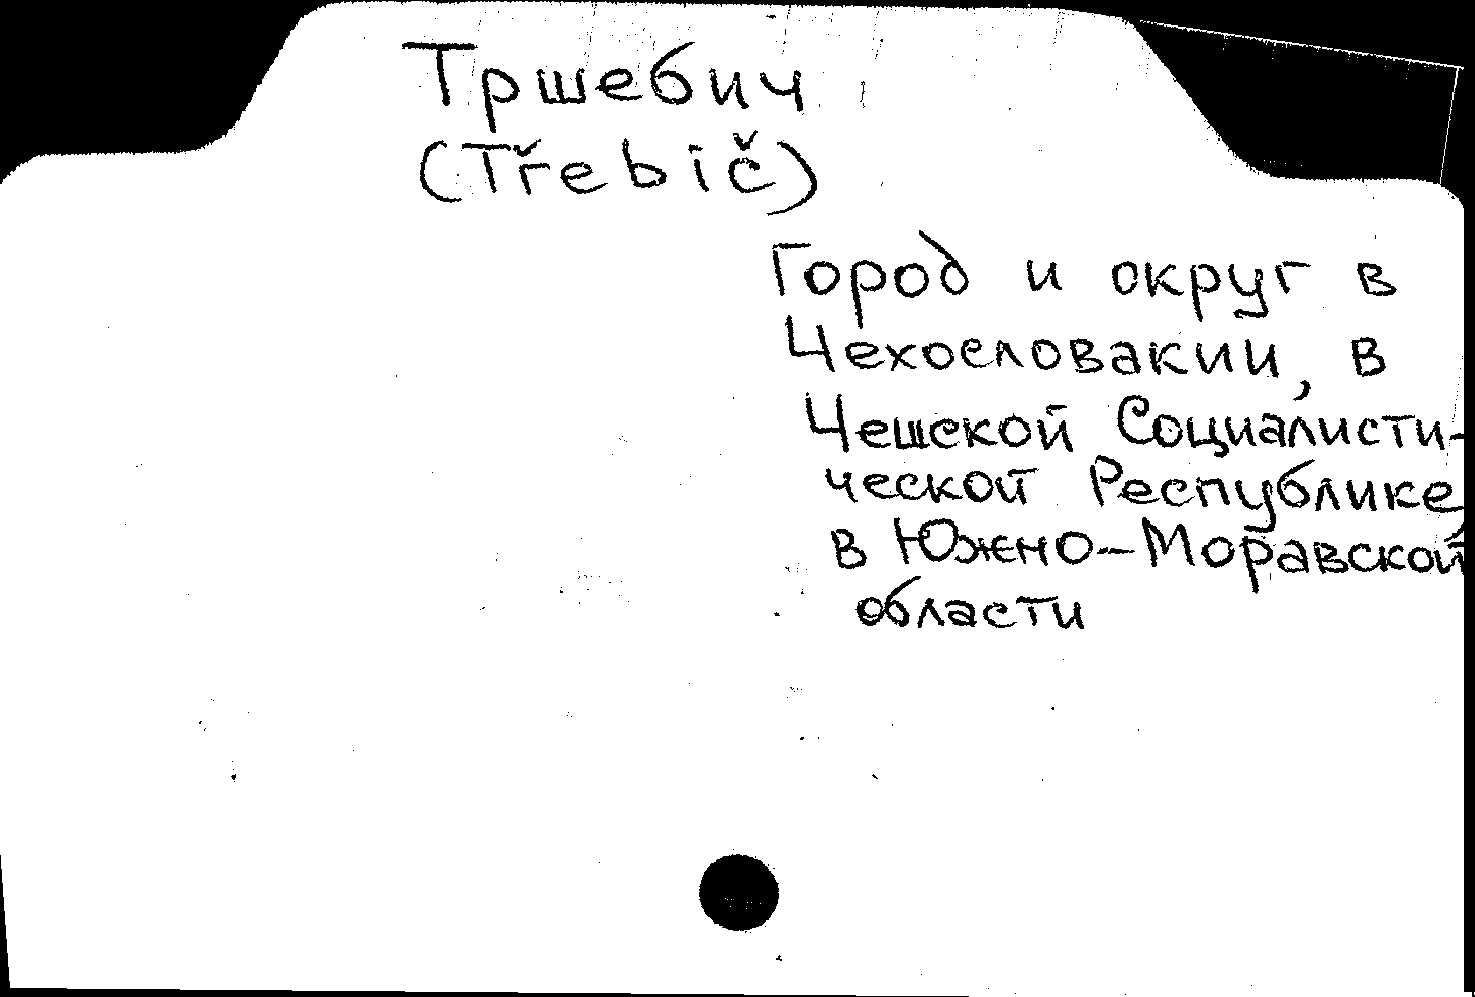 Тршебич
(Třebič)
Город и округ в
Чехословакии, в
Чешской Социалисти-
ческой Республике,
в Южно-Моравской
области